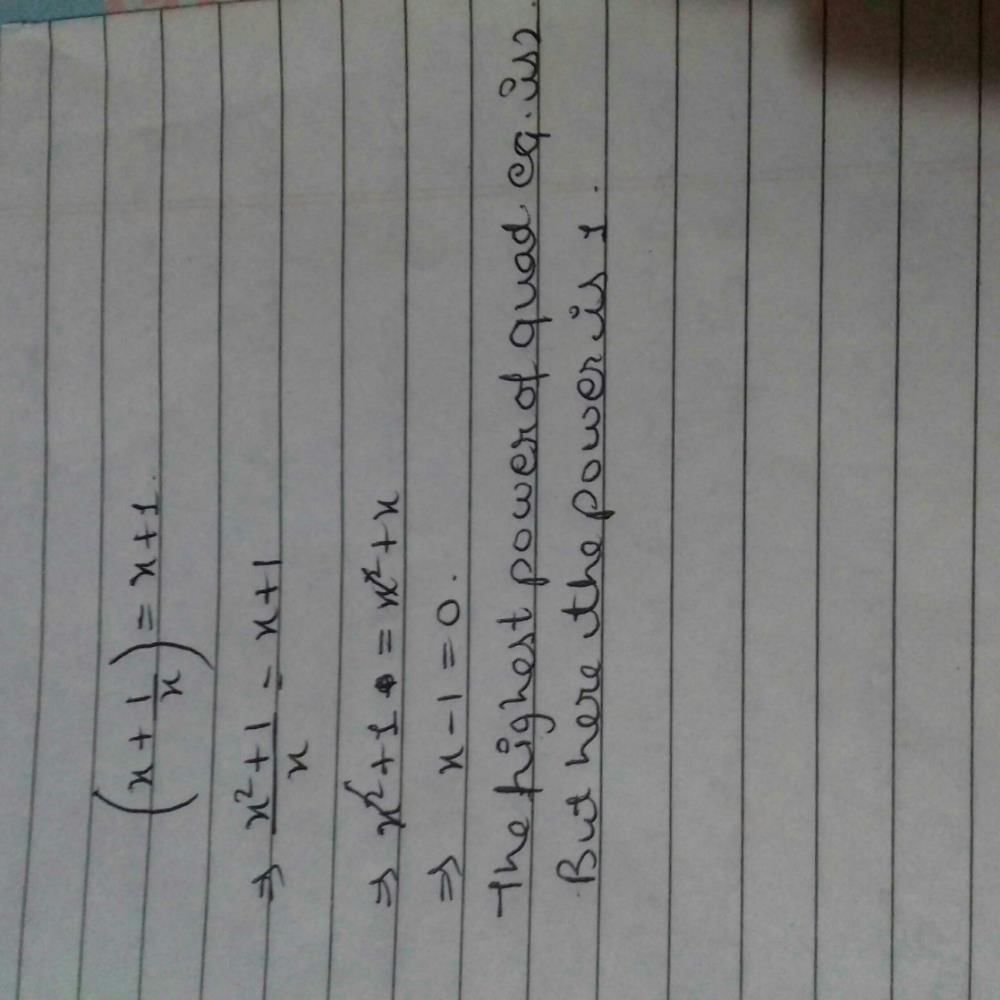 (x + 1/x) = x + 1.
⇒ x² + 1 / x = x + 1
⇒ x² + 1 = x² + x
⇒ x - 1 = 0.
The highest power of quad eq. is 2.
But here the power is 1.